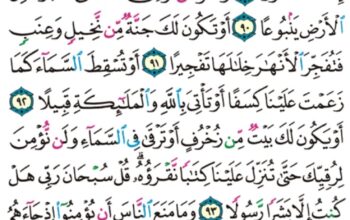 ٱلْأَرْضِ يَنۢبُوعًا ٩٠ أَوْ تَكُونَ لَكَ جَنَّةٌ مِّن نَّخِيلٍ وَعِنَبٍ
فَتُفَجِّرَ ٱلْأَنْهَـٰرَ خِلَـٰلَهَا تَفْجِيرًا ٩١ أَوْ تُسْقِطَ ٱلسَّمَآءَ كَمَا
زَعَمْتَ عَلَيْنَا كِسَفًا أَوْ تَأْتِىَ بِٱللَّهِ وَٱلْمَلَـٰٓئِكَةِ قَبِيلًا ٩٢
أَوْ يَكُونَ لَكَ بَيْتٌ مِّن زُخْرُفٍ أَوْ تَرْقَىٰ فِى ٱلسَّمَآءِ وَلَن نُّؤْمِنَ
لِرُقِيِّكَ حَتَّىٰ تُنَزِّلَ عَلَيْنَا كِتَـٰبًا نَّقْرَؤُهُۥ قُلْ سُبْحَانَ رَبِّى هَلْ
كُنتُ إِلَّا بَشَرًا رَّسُولًا ٩٣ وَمَا مَنَعَ ٱلنَّاسَ أَن يُؤْمِنُوٓا۟ إِذْ جَآءَهُمُ